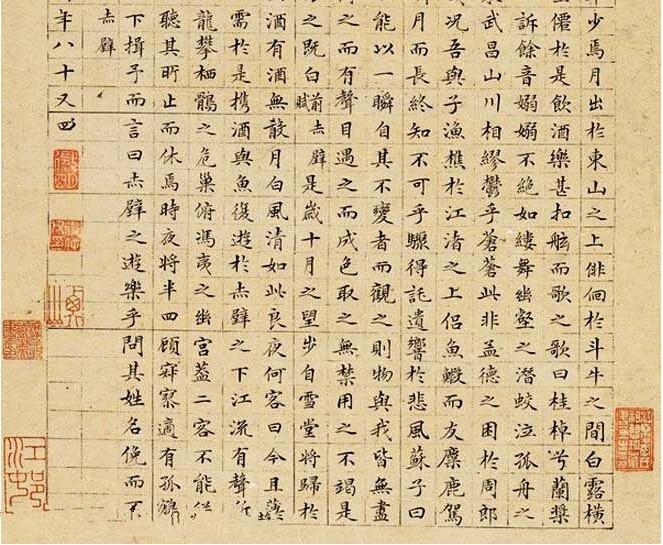 少焉月出於東山之上徘徊於斗牛之間白露橫
僊於是飲酒樂甚扣舷而歌之歌曰桂棹兮蘭槳
訴餘音嫋嫋不絕如縷舞幽壑之潛蛟泣孤舟之
武昌山川相繆鬱乎蒼蒼此非孟德之困於周郎
況吾與子漁樵於江渚之上侶魚鰕而友麋鹿駕
月而長終知不可乎驟得託遺響於悲風蘇子曰
能以一瞬自其不變者而觀之則物與我皆無盡
之而有聲目遇之而成色取之無禁用之不竭是
之既白前赤壁賦是歲十月之望步自雪堂將歸於
酒有酒無殽月白風清如此良夜何客曰今且
需於是攜酒與魚復遊於赤壁之下江流有聲
龍攀栖鶻之危巢俯馮夷之幽宮蓋二客不能
聽其所止而休焉時夜將半四顧寂寥適有孤鶴
下揖予而言曰赤壁之遊樂乎問其姓名俛而不
赤壁
年八十又四
江邨